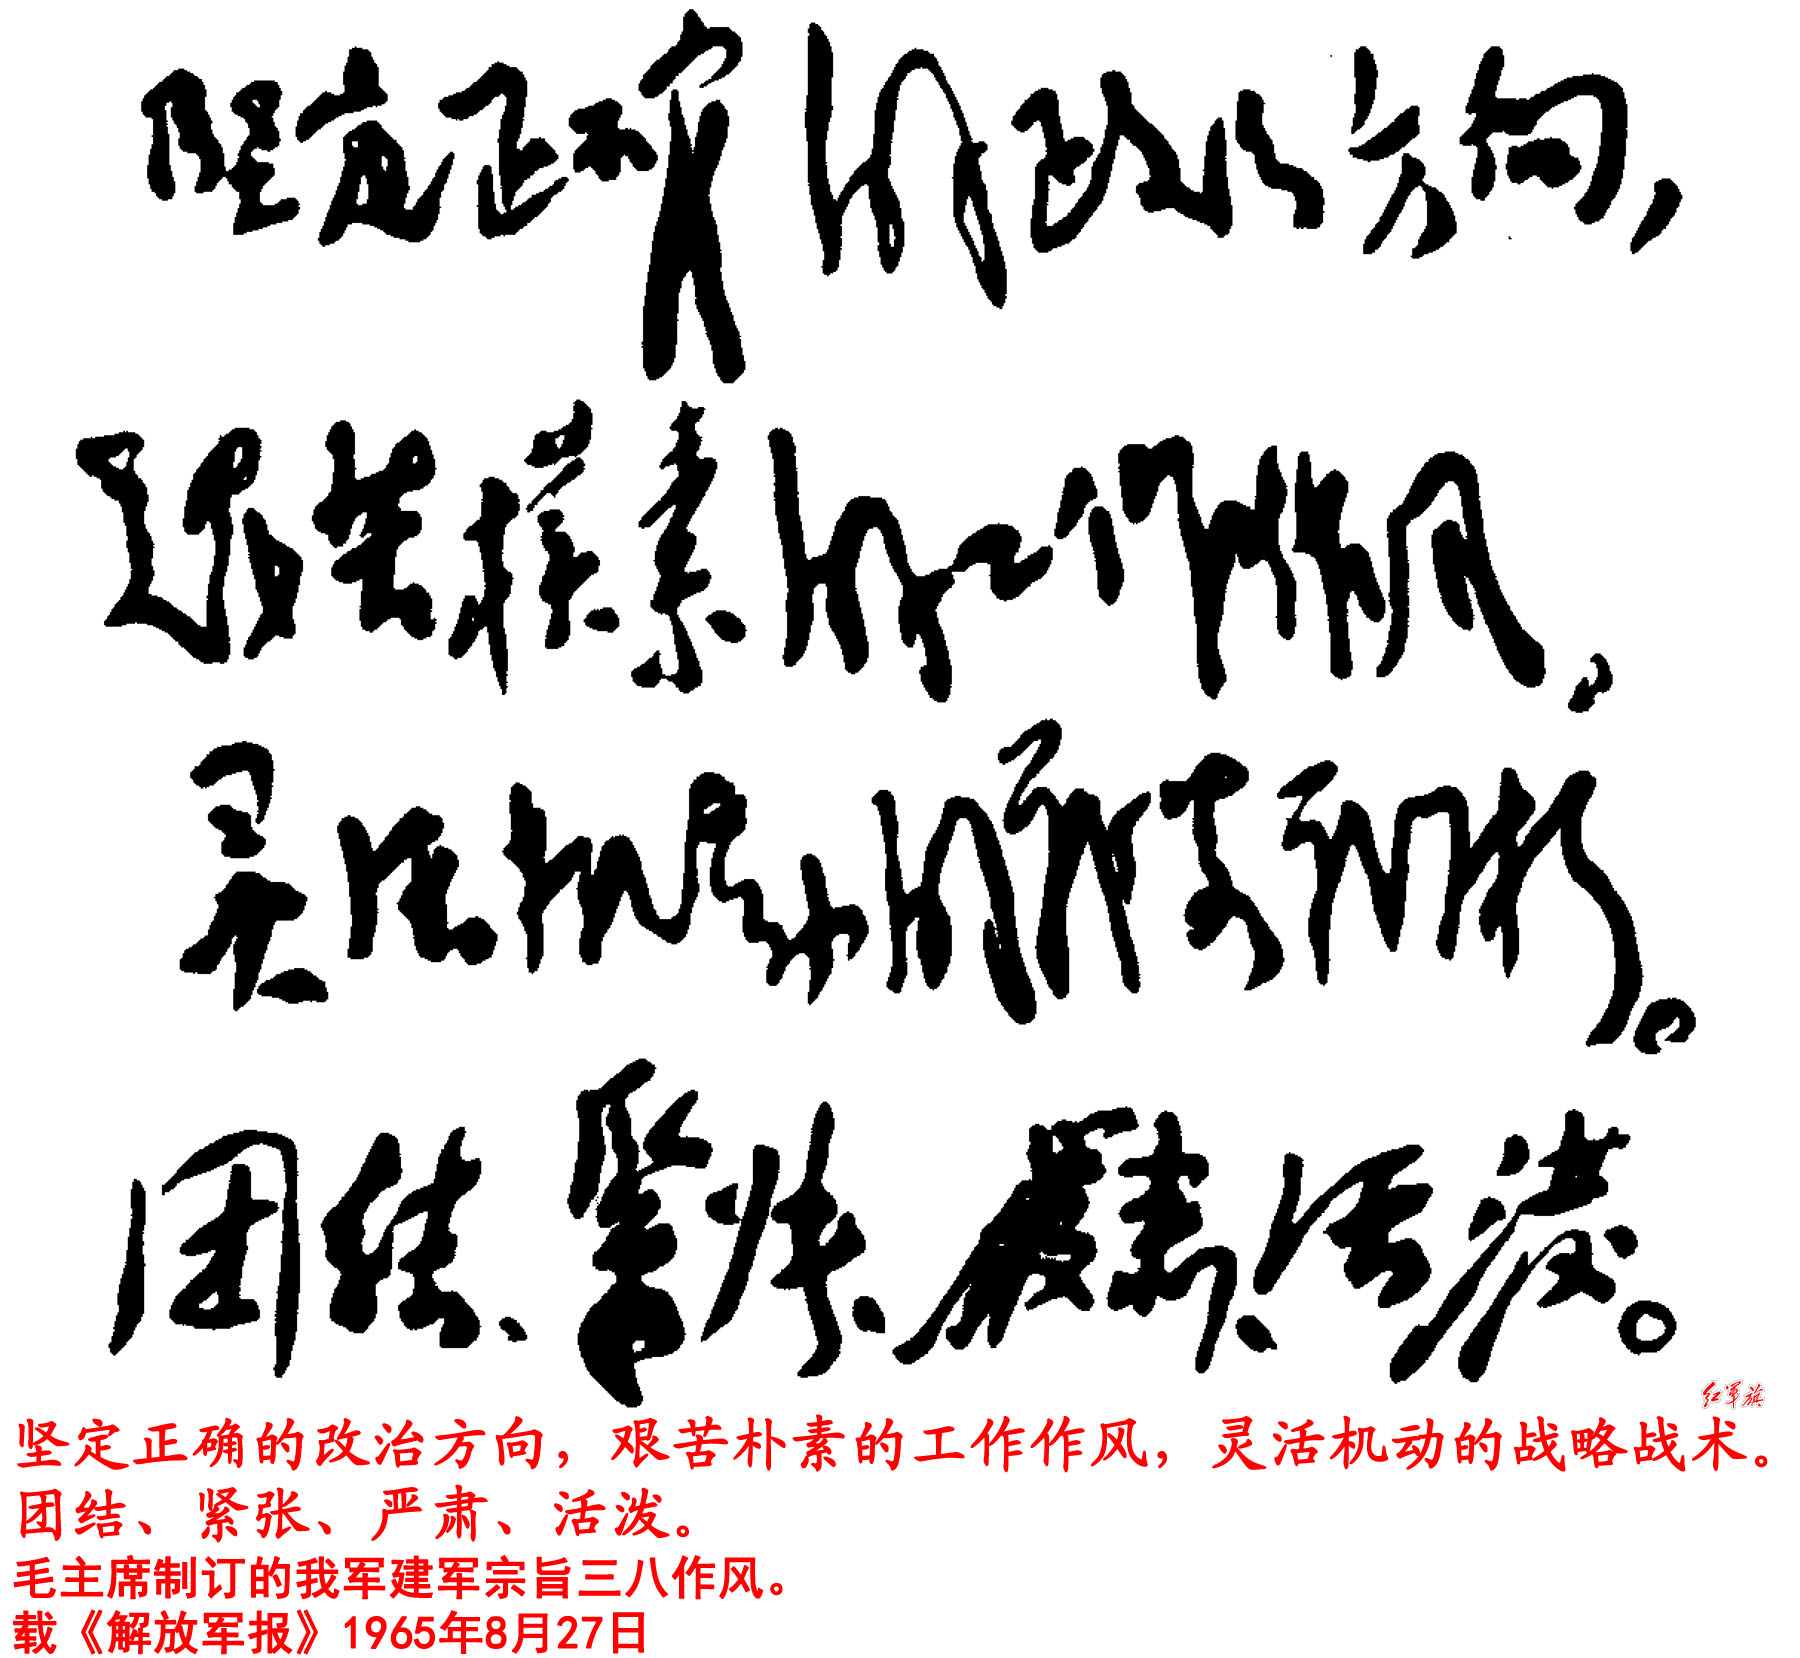 坚定正确的政治方向，
艰苦樸素的工作作风，
灵活机动的战略战术。
团结、紧张、严肃、活泼。
红军旗
坚定正确的改治方向，艰苦朴素的工作作风，灵活机动的战略战术。
团结、紧张、严肃、活泼。
毛主席制订的我军建军宗旨三八作风。
载《解放军报》1965年8月27日